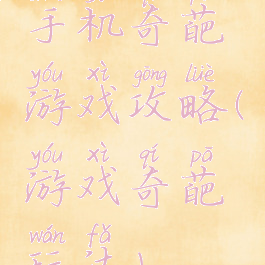 手机奇葩
yóu xì gōng lüè
游戏攻略(
yóu xì qí pā
游戏奇葩
wán fǎ
玩法)